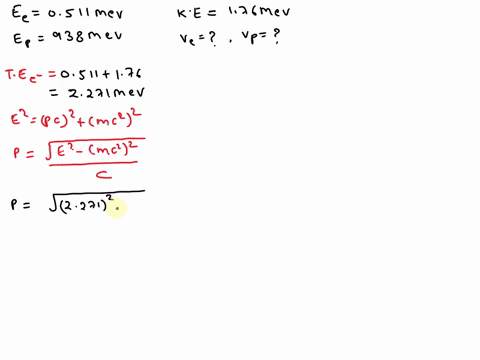 Ee = 0.511 mev K.E = 1.76 mev
Ep = 938 mev Ve = ? , Vp = ?
T.Ee- = 0.511 + 1.76
= 2.271 mev
E² = (Pc)² + (mc²)²
P = √E² - (mc²)² / C
P = √(2.271)²